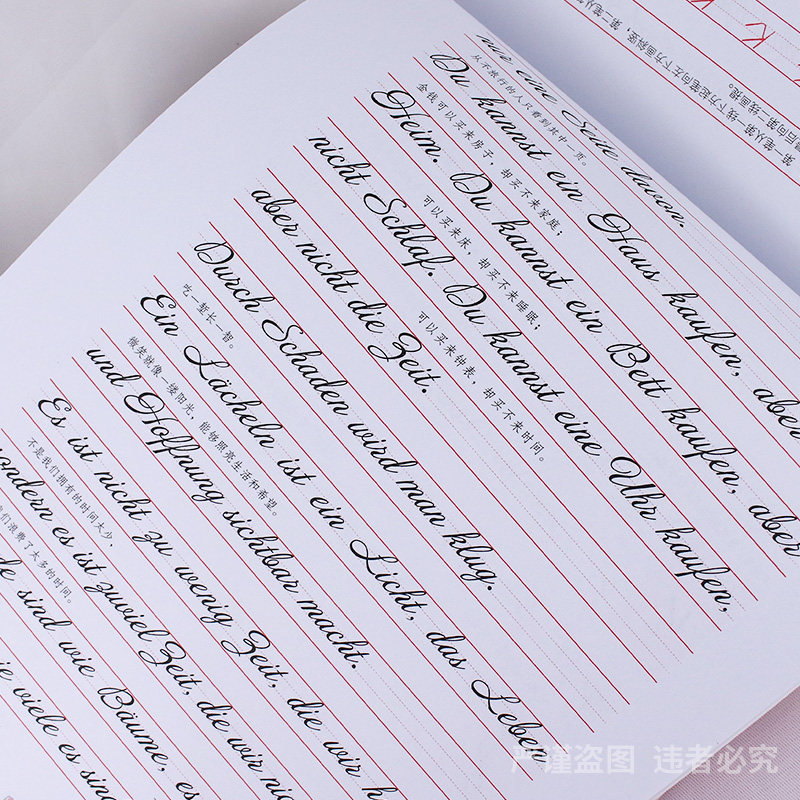 nur eine Seite davon.
从不旅行的人只看到其中一页。
Du kannst ein Haus kaufen, aber
金钱可以买来房子，却买不来家庭；
Heim. Du kannst ein Bett kaufen, aber
可以买来床，却买不来睡眠；
nicht Schlaf. Du kannst eine Uhr kaufen,
可以买来钟表，却买不来时间。
aber nicht die Zeit.
Durch Schaden wird man klug.
吃一堑长一智。
Ein Lächeln ist ein Licht, das Leben
微笑就像一缕阳光，能够照亮生活和希望。
und Hoffnung sichtbar macht.
Es ist nicht zu wenig Zeit, die wir h
不是我们拥有的时间太少，
ondern es ist zuviel Zeit, die wir nic
们浪费了太多的时间。
de sind wie Bäume, es
ie viele es sind
第一笔从第一线下方起笔向左下方画斜竖，第二笔从
后向第一线画提。
严谨盗图 违者必究